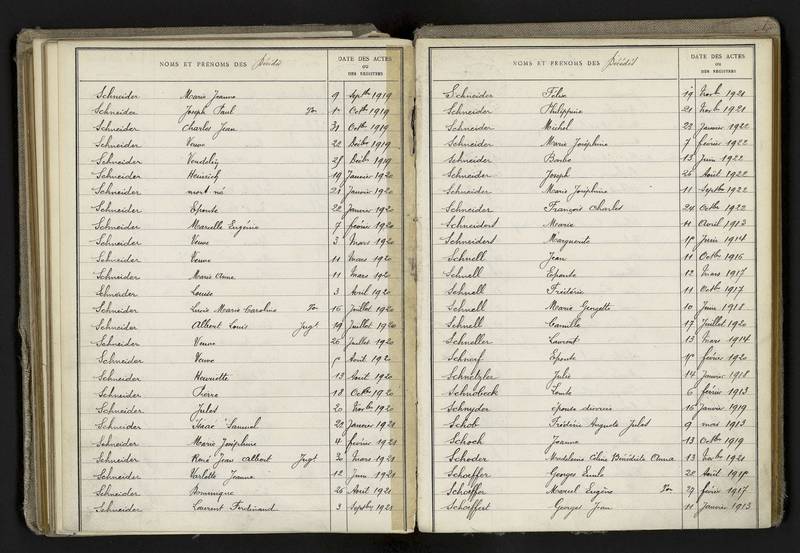 NOMS ET PRENOMS DES Décédés DATE DES ACTES
OU
DES REGISTRES
Schneider Marie Jeanne 9 Septbre 1919
Schneider Joseph Paul Octbre 1919
Schneider Charles Jean 31 Octbre 1919
Schneider Veuve 22 Décbre 1919
Schneider Vendelin Décbre 1919
Schneider Heinrich 19 Janvier 1920
Schneider mort né 21 Janvier 1920
Schneider Epouse 22 Janvier 1920
Schneider Marcelle Eugénie 7 février 1920
Schneider Veuve 3 Mars 1920
Schneider Veuve 11 Mars 1920
Schneider Marie Anne 11 Mars 1920
Schneider Louise 3 Avril 1920
Schneider Lucie Marie Caroline 16 Juillet 1920
Schneider Albert Louis Jugt 19 Juillet 1920
Schneider Veuve 26 Juillet 1920
Schneider Veuve Août 1920
Schneider Henriette 13 Août 1920
Schneider Pierre 18 Octbre 1920
Schneider Jules 20 Novbre 1920
Schneider Isaac Samuel 20 Janvier 1921
Schneider Marie Joséphine 4 février 1921
Schneider René Jean Albert Jugt Mars 1921
Schneider Charlotte Jeanne 12 Juin 1921
Schneider Dominique 26 Août 1921
Schneider Laurent Ferdinand 3 Septbre 1921
NOMS ET PRENOMS DES Décédés DATE DES ACTES
OU
DES REGISTRES
Schneider Félix 19 Novb. 1921
Schneider Philippine 21 Novb. 1921
Schneider Michel 23 Janvier 1922
Schneider Marie Joséphine 7 février 1922
Schneider Barbe 13 Juin 1922
Schneider Joseph 26 Août 1922
Schneider Marie Joséphine 11 Septbre 1922
Schneider François Charles 24 Octbre 1922
Schneiders Marie 11 Avril 1913
Schneiders Marguerite Juin 1914
Schnell Jean 11 Octbre 1916
Schnell Epouse 12 Mars 1917
Schnell Frédéric 11 Octb 1917
Schnell Marie Georgette 10 Juin 1918
Schnell Camille 17 Juillet 1920
Schneller Laurent 13 Mars 1914
Schnerf Epouse février 1920
Schnetzler Julie 14 Janvier 1918
Schnobeck Louise 6 février 1913
Schnyder épouse divorcée 16 Janvier 1919
Schob Frédéric Auguste Jules 9 mars 1913
Schoch Jeanne 13 Octbre 1919
Schoder Madelaine Céline Bénédicte Anna 13 Novb. 1921
Schoeffer Georges Emile 22 Août 1915
Schoeffer Marcel Eugène 29 février 1917
Schoeffert Georges Jean 11 Janvier 1913